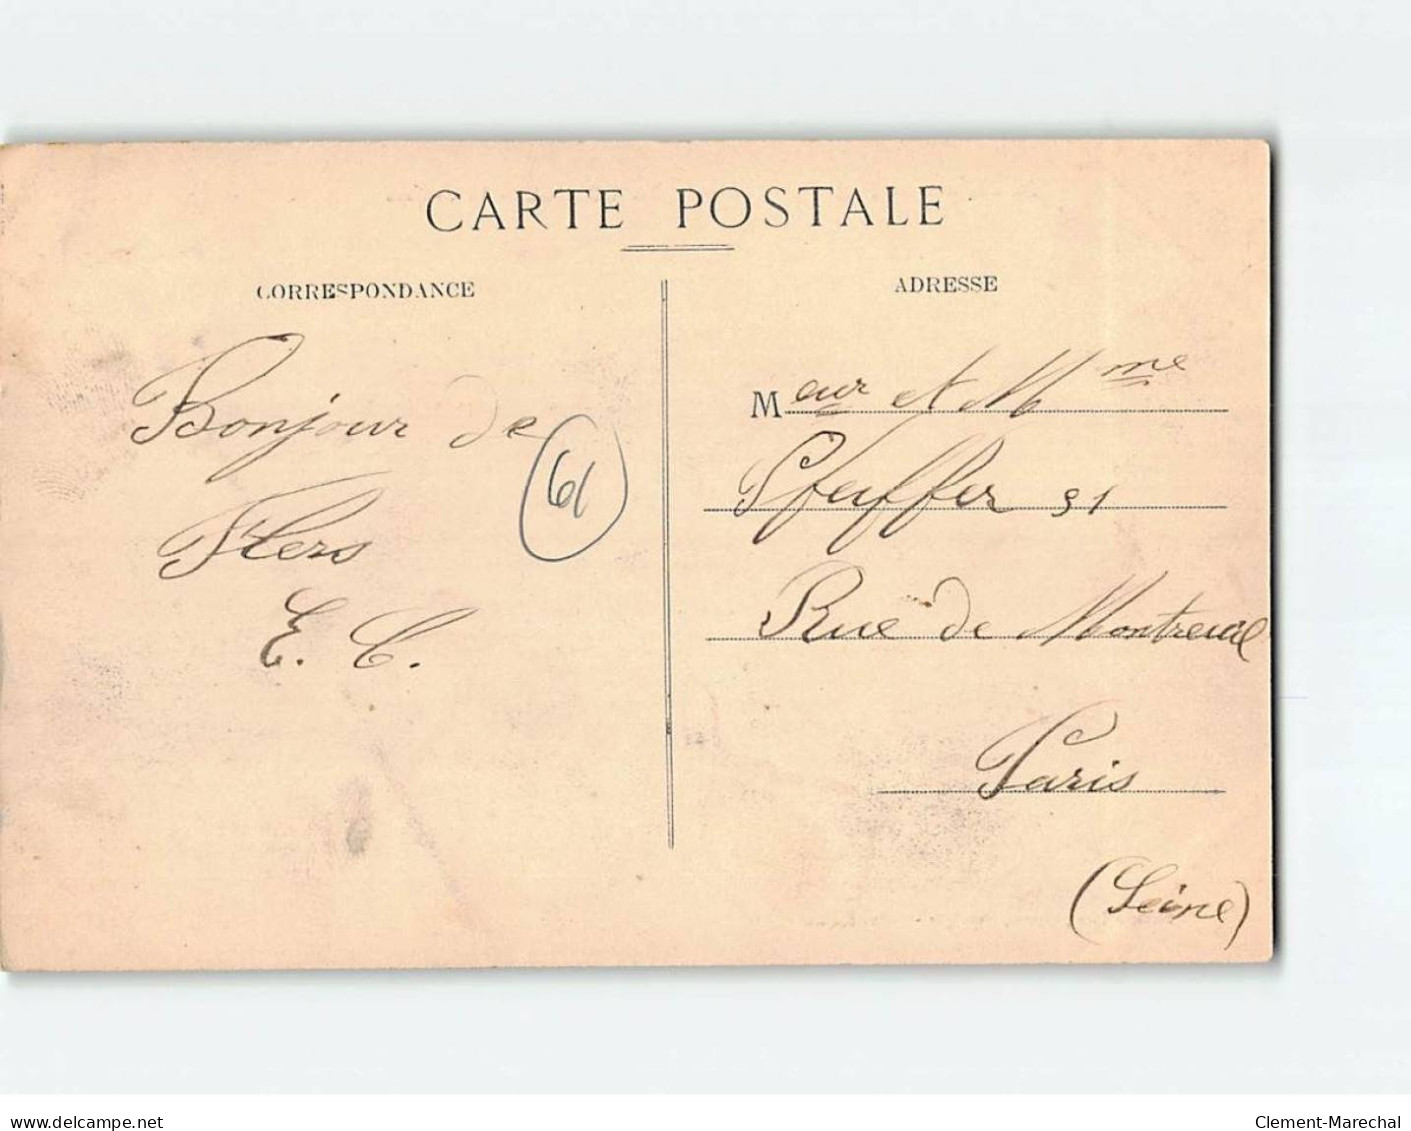 CARTE POSTALE
CORRESPONDANCE
Bonjour de
Flers
E. C.
61
ADRESSE
Meur et Mme
Pfeiffer 91
Rue de Montreuil
Paris
(Seine)
www.delcampe.net
Clement-Marechal